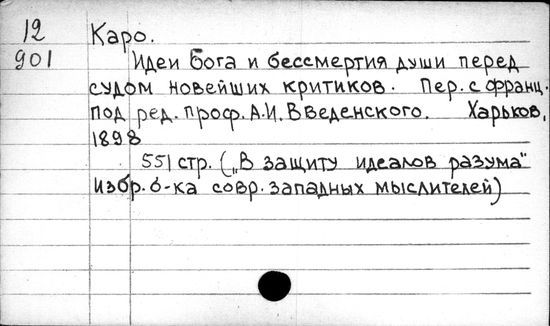 12 Каро.
901 Идеи Бога и бессмертия души перед
судом новейших критиков. Пер. с франц.
под ред. проф. А.И. Введенского. Харьков,
1898
551 стр. („В защиту идеалов разума"
Избр. б-ка совр. западных мыслителей)